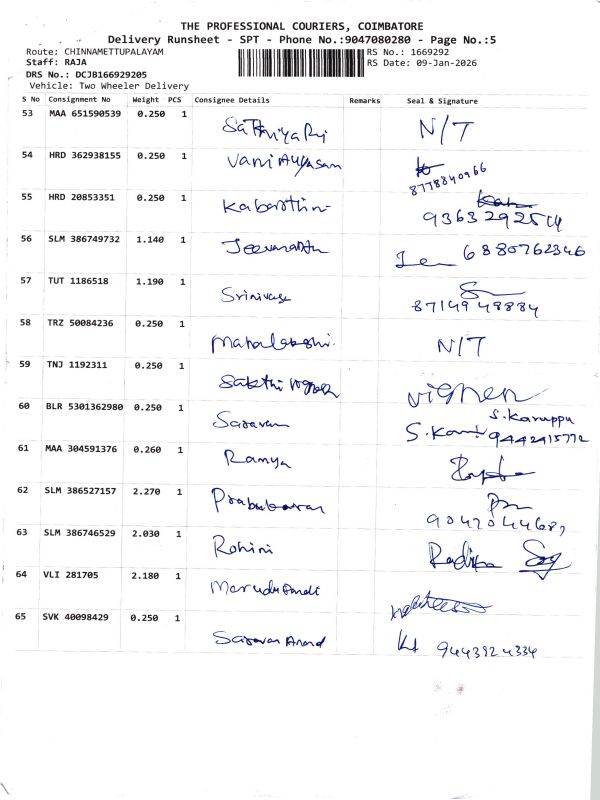 THE PROFESSIONAL COURIERS, COIMBATORE
Delivery Runsheet - SPT - Phone No.:9047080280 - Page No.:5
Route: CHINNAMETTUPALAYAM RS No.: 1669292
Staff: RAJA RS Date: 09-Jan-2026
DRS No.: DCJB166929205
Vehicle: Two Wheeler Delivery
S No Consignment No Weight PCS Consignee Details Remarks Seal & Signature
53 MAA 651590539 0.250 1 N/T
54 HRD 362938155 0.250 1 8778840966
55 HRD 20853351 0.250 1 9363292514
56 SLM 386749732 1.140 1 6380762346
57 TUT 1186518 1.190 1 Srinivase 8714948884
58 TRZ 50084236 0.250 1 N/T
59 TNJ 1192311 0.250 1 Sakthi
60 BLR 5301362980 0.250 1 Saravan S.Karuppu
9442415772
61 MAA 304591376 0.260 1 Ramya
62 SLM 386527157 2.270 1
63 SLM 386746529 2.030 1 Rohini Radika
64 VLI 281705 2.180 1
65 SVK 40098429 0.250 1 Saravan Anand 9443924334